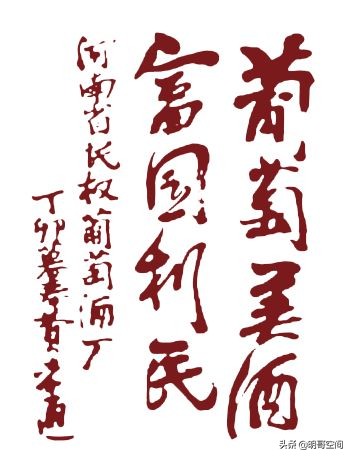 葡萄美酒
富国利民
河南省民权葡萄酒厂
丁卯暮春黄
头条 @明哥空间